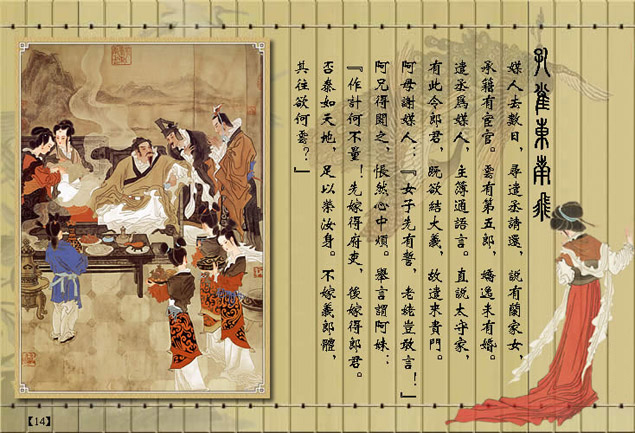 孔雀東南飛
媒人去數日，尋遣丞請還，說有蘭家女，
承籍有宦官。雲有第五郎，嬌逸未有婚。
遣丞為媒人，主簿通語言。直說太守家，
有此令郎君，既欲結大義，故遣來貴門。
阿母謝媒人：『女子先有誓，老姥豈敢言！』
阿兄得聞之，悵然心中煩。舉言謂阿妹：
『作計何不量！先嫁得府吏，後嫁得郎君。
否泰如天地，足以榮汝身。不嫁義郎體，
其往欲何雲？』
【14】